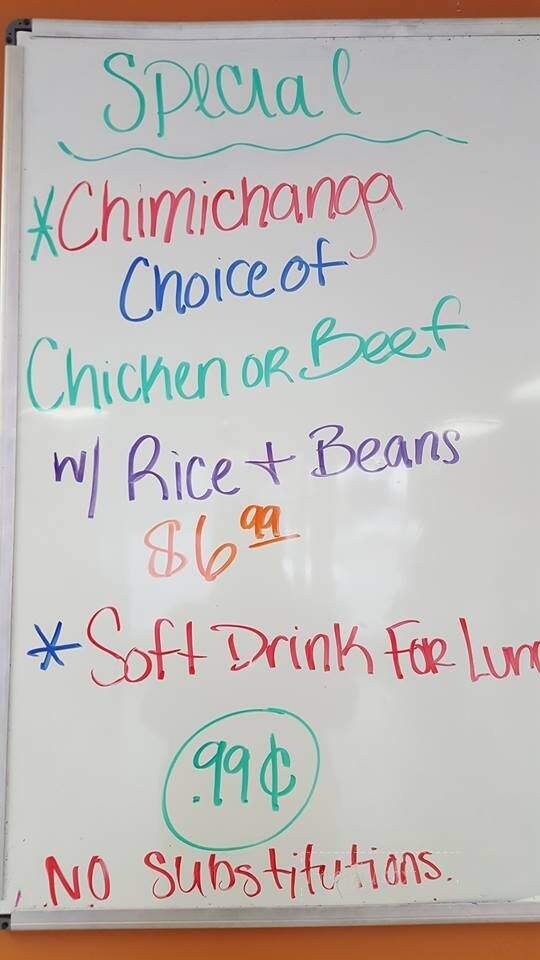 Special
*Chimichanga
Choice of
Chicken or Beef
w/ Rice + Beans
$6.99
* Soft Drink For Lun
.99¢
No Substitutions.